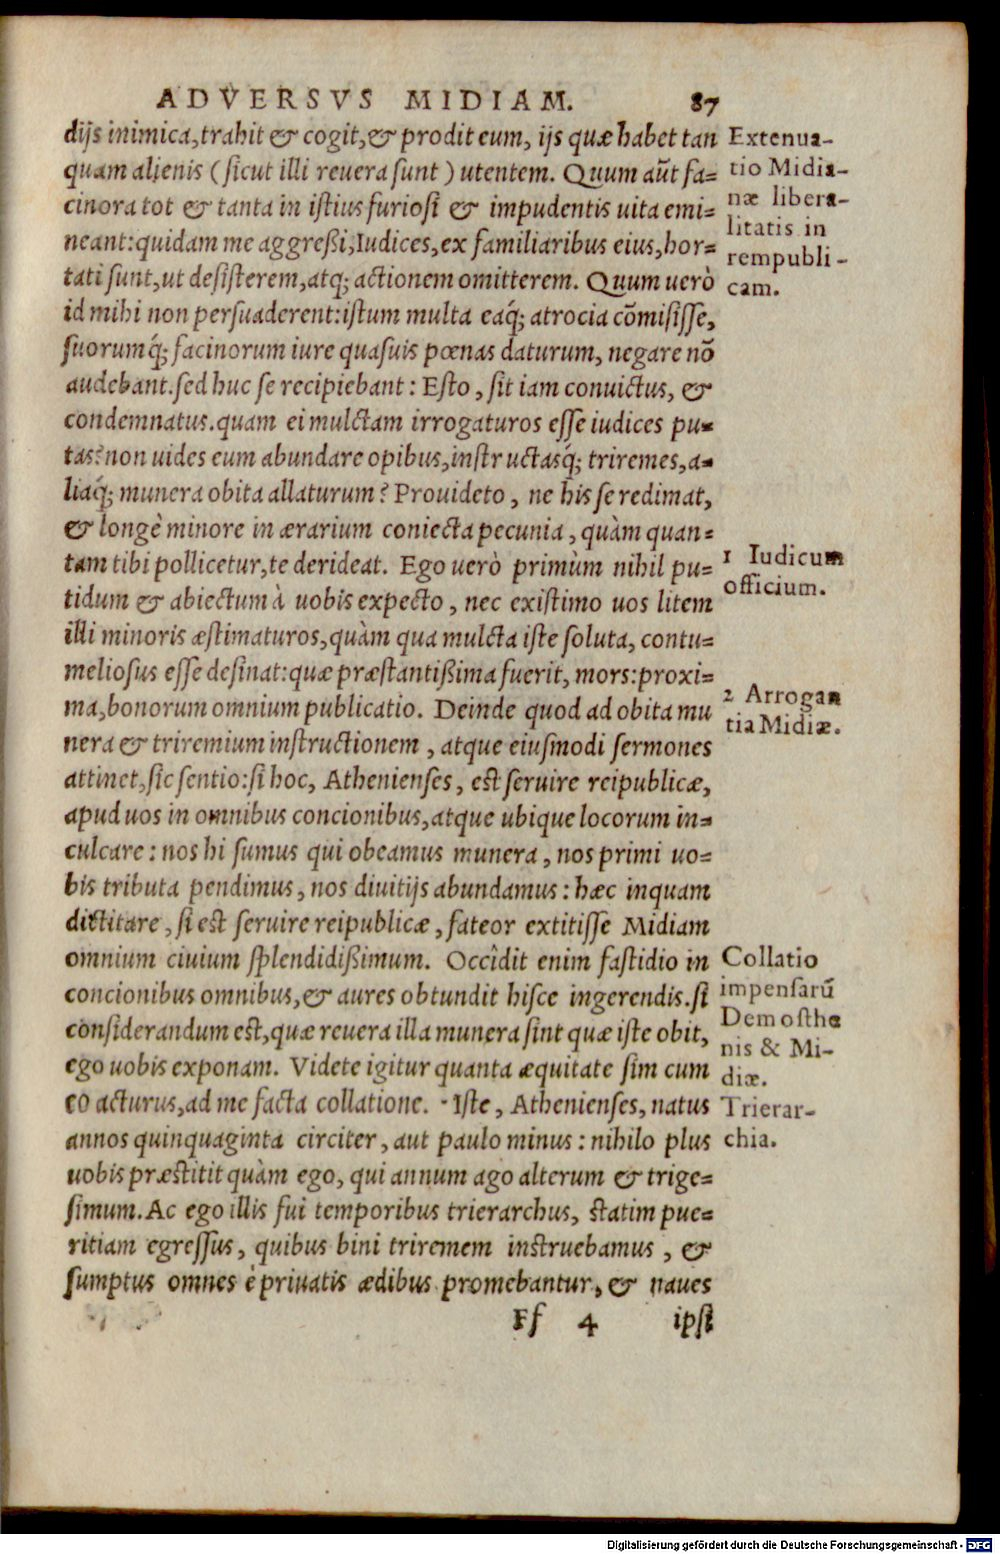 ADVERSVS MIDIAM. 87
dijs inimica, trahit & cogit, & prodit eum, ijs quæ habet tan
quam alienis (sicut illi reuera sunt) utentem. Quum aūt fa-
cinora tot & tanta in istius furiosi & impudentis uita emi-
neant: quidam me aggreßi, Iudices, ex familiaribus eius, hor-
tati sunt, ut desisterem, atq; actionem omitterem. Quum uerò
id mihi non persuaderent: istum multa eaq́; atrocia cōmisisse,
suorumq́; facinorum iure quasuis pœnas daturum, negare nō
audebant. sed huc se recipiebant: Esto, sit iam conuictus, &
condemnatus. quam ei mulctam irrogaturos esse iudices pu-
tas? non uides eum abundare opibus, instructasq́; triremes, a-
liaq́; munera obita allaturum? Prouideto, ne his se redimat,
& longè minore in ærarium coniecta pecunia, quàm quan-
tam tibi pollicetur, te derideat. Ego uerò primùm nihil pu-
tidum & abiectum à uobis expecto, nec existimo uos litem
illi minoris æstimaturos, quàm qua mulcta iste soluta, contu-
meliosus esse desinat: quæ præstantißima fuerit, mors: proxi-
ma, bonorum omnium publicatio. Deinde quod ad obita mu
nera & triremium instructionem, atque eiusmodi sermones
attinet, sic sentio: si hoc, Athenienses, est seruire reipublicæ,
apud uos in omnibus concionibus, atque ubique locorum in-
culcare: nos hi sumus qui obeamus munera, nos primi uo-
bis tributa pendimus, nos diuitijs abundamus: hæc inquam
dictitare, si est seruire reipublicæ, fateor extitisse Midiam
omnium ciuium splendidißimum. Occîdit enim fastidio in
concionibus omnibus, & aures obtundit hisce ingerendis. si
considerandum est, quæ reuera illa munera sint quæ iste obit,
ego uobis exponam. Videte igitur quanta æquitate sim cum
eo acturus, ad me facta collatione. Iste, Athenienses, natus
annos quinquaginta circiter, aut paulo minus: nihilo plus
uobis præstitit quàm ego, qui annum ago alterum & trige-
simum. Ac ego illis fui temporibus trierarchus, statim pue-
ritiam egressus, quibus bini triremem instruebamus, &
sumptus omnes è priuatis ædibus promebantur, & naues
Ff 4 ipsi
Extenua-
tio Midia-
næ libera-
litatis in
rempubli-
cam.
1 Iudicum
officium.
2 Arrogan
tia Midiæ.
Collatio
impensarū
Demosthe
nis & Mi-
diæ.
Trierar-
chia.
Digitalisierung gefördert durch die Deutsche Forschungsgemeinschaft - DFG